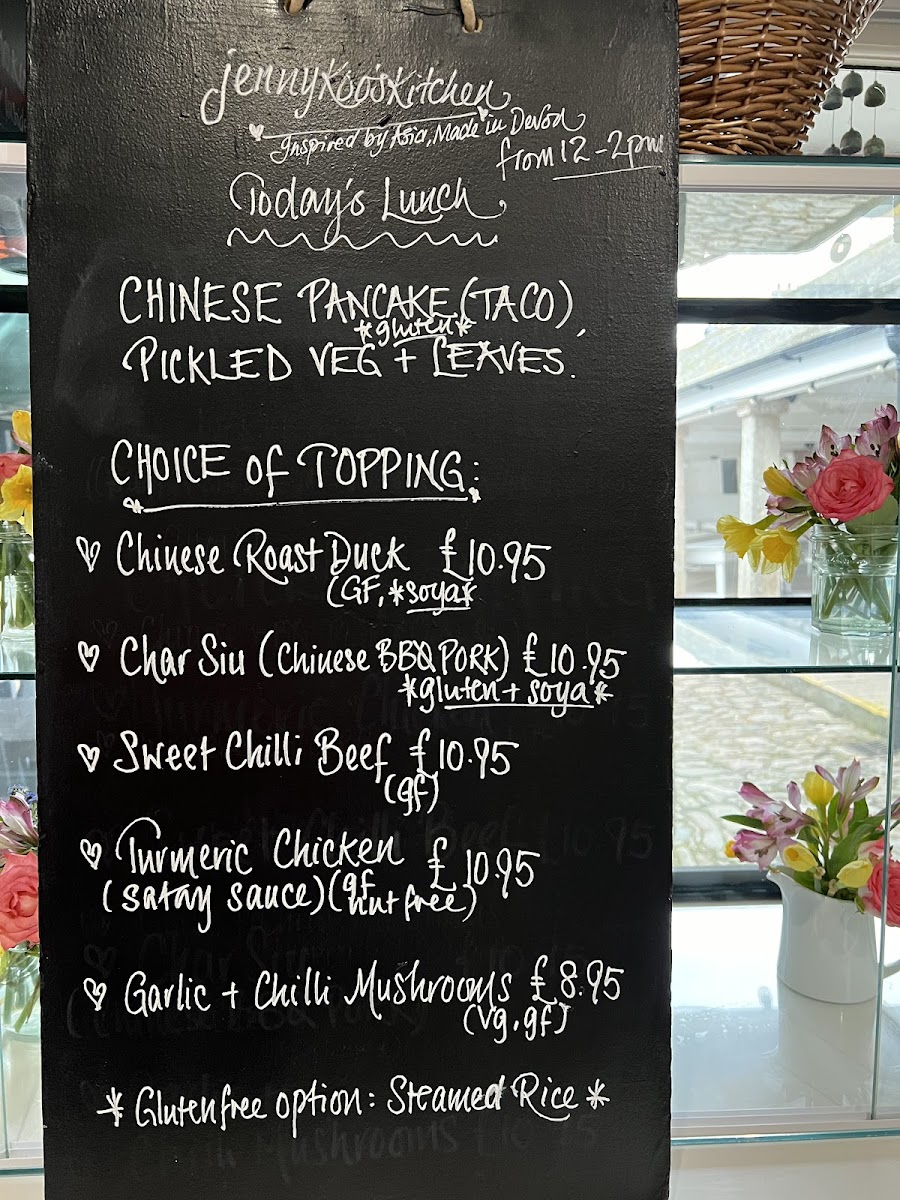 jennykoo'skitchen
Inspired by Asia, Made in Devon
from 12-2pm
Today's Lunch
CHINESE PANCAKE (TACO),
*gluten*
PICKLED VEG + LEAVES.
CHOICE of TOPPING:
Chinese Roast Duck £10.95
(GF, *soya*
Char Siu (Chinese BBQ PORK) £10.95
*gluten + soya*
Sweet Chilli Beef £10.95
(gf)
Turmeric Chicken £10.95
(satay sauce) (gf nut free)
Garlic + Chilli Mushrooms £8.95
(vg, gf)
* Glutenfree option: Steamed Rice *